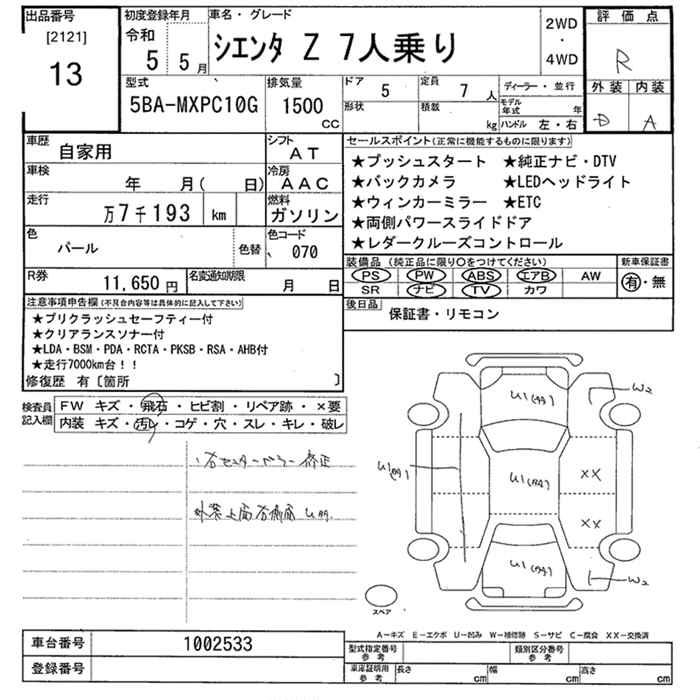 出品番号
[2121]
13
初度登録年月
令和
5 5月
車名・グレード
シエンタ Z 7人乗り
2WD
・
4WD
評価点
R
型式
5BA-MXPC10G
排気量
1500
cc
ドア
5
定員
7 人
形状
積載
kg
ディーラー・並行
モデル年式 年
ハンドル 左・右
外装 内装
D A
車歴
自家用
シフト
AT
車検
年 月( 日)
冷房
AAC
走行
万7千193 km
燃料
ガソリン
色
パール
色替
色コード
070
R券
11,650円
名変通知期限
月 日
セールスポイント(正常に機能するものに限ります)
★プッシュスタート ★純正ナビ・DTV
★バックカメラ ★LEDヘッドライト
★ウィンカーミラー ★ETC
★両側パワースライドドア
★レダークルーズコントロール
装備品(純正品に限り○をつけてください)
新車保証書
PS PW ABS エアB AW
SR ナビ TV カワ
有・無
後日品
保証書・リモコン
注意事項申告欄(不具合内容等は具体的に記入して下さい)
★プリクラッシュセーフティー付
★クリアランスソナー付
★LDA・BSM・PDA・RCTA・PKSB・RSA・AHB付
★走行7000km台!!
修復歴 有〔箇所 〕
検査員記入欄
FW キズ・飛石・ヒビ割・リペア跡・×要
内装 キズ・汚レ・コゲ・穴・スレ・キレ・破レ
・右センターピラー修正
U1
W2
U1
U1
XX
XX
U1
W2
スペア
A−キズ E−エクボ U−凹み W−補修跡 S−サビ C−腐食 XX−交換済
車台番号
1002533
登録番号
型式指定番号
参考
類別区分番号
参考
車庫証明用
参考
長さ cm
幅 cm
高さ cm